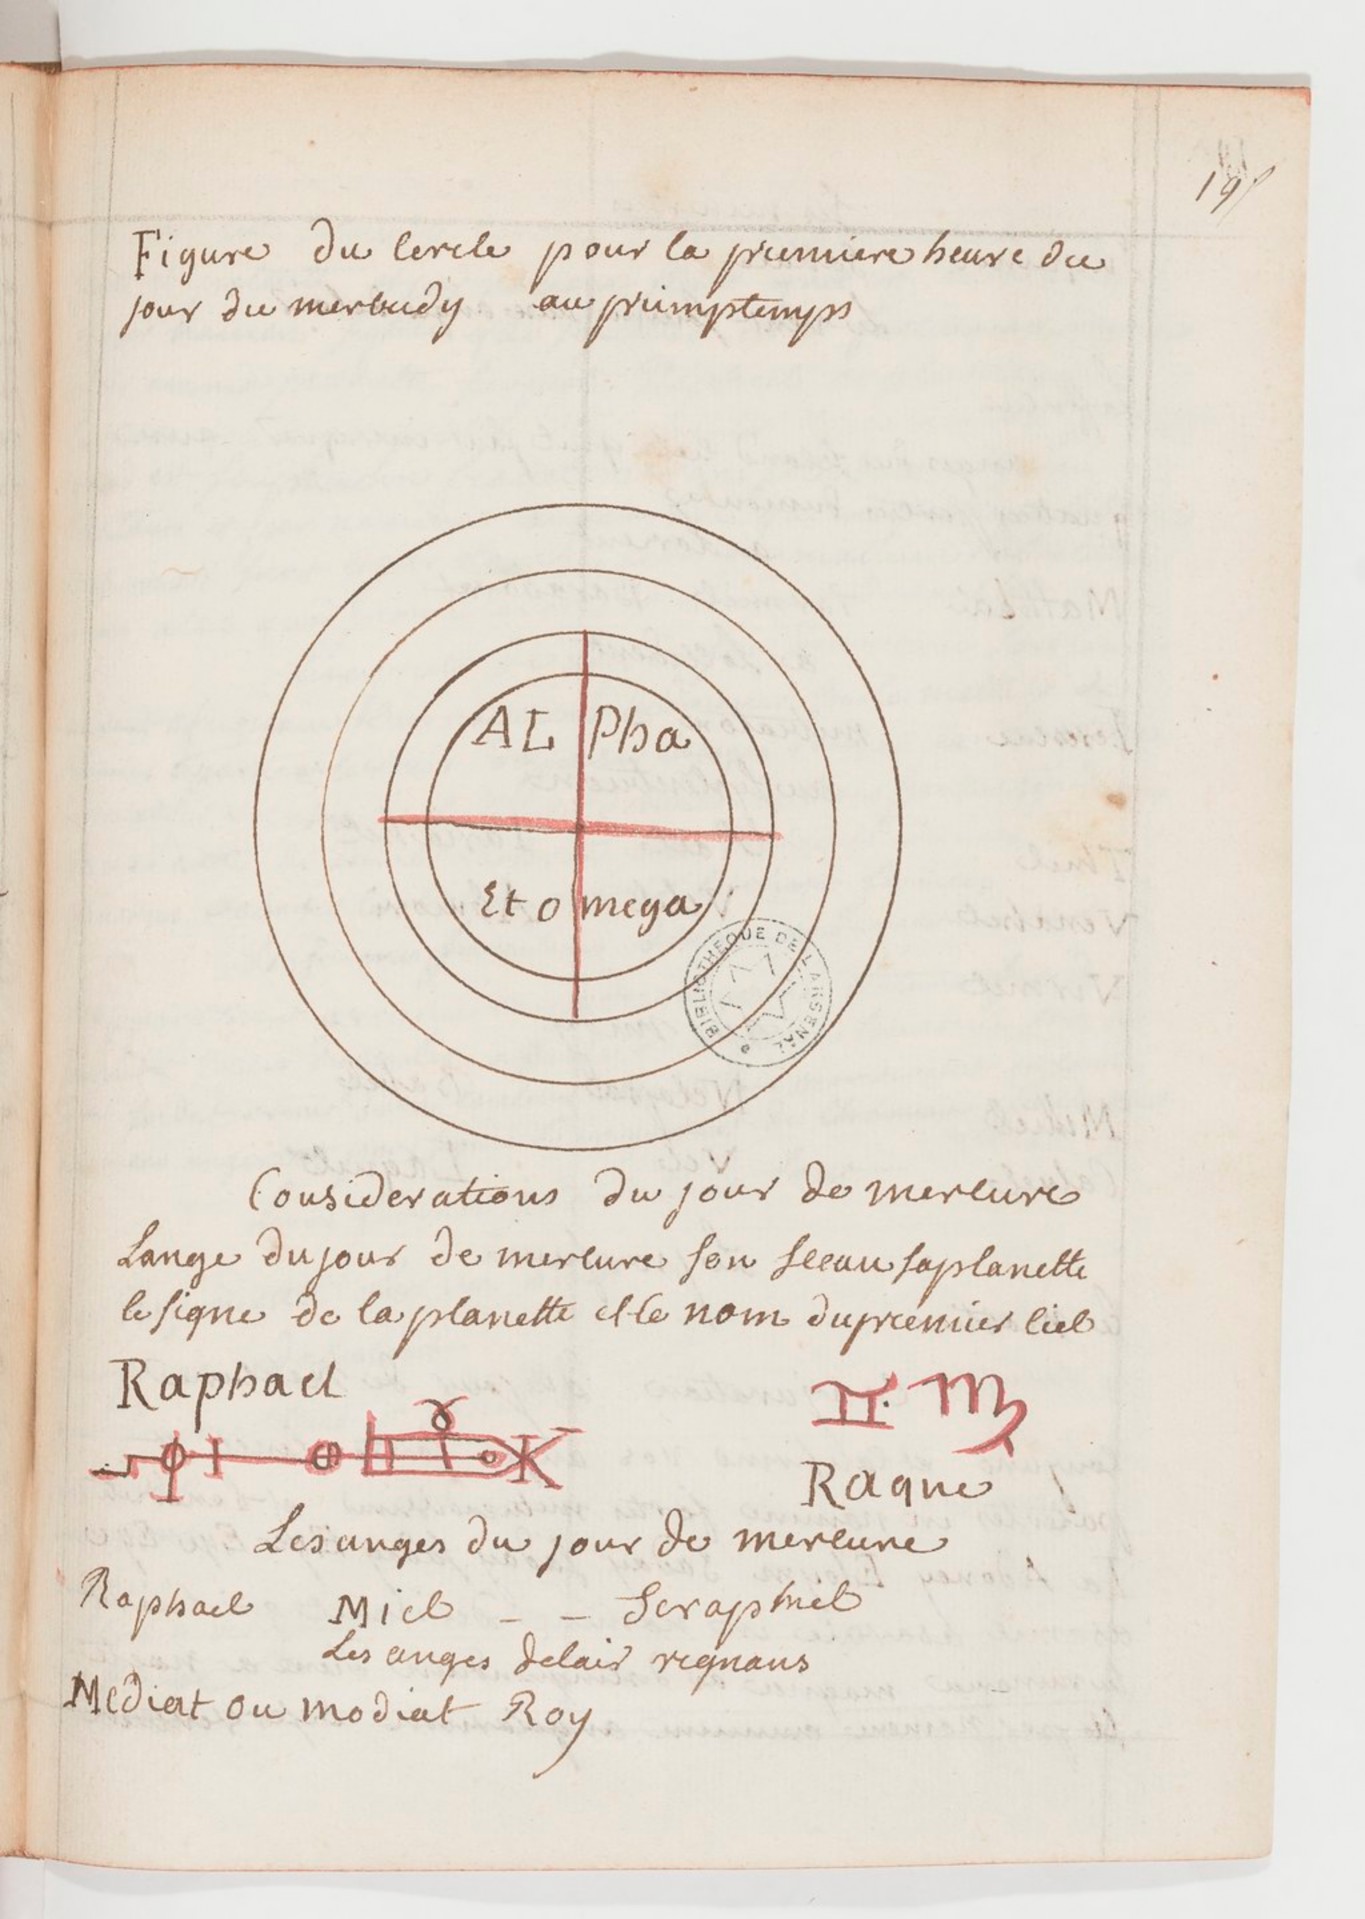 19
Figure du Cercle pour la premiere heure du
jour du mercudy au primptemps
AL Pha
Et o mega
BIBLIOTHEQUE DE L'ARSENAL
Considerations du jour de mercure
Lange du jour de mercure son Seeau sa planette
le signe de la planette et le nom du premier Ciel
Raphael
♊ ♍
Raque
Les anges du jour de mercure
Raphael Miel - - Seraphiel
Les anges delair regnans
Mediat ou modiat Roy